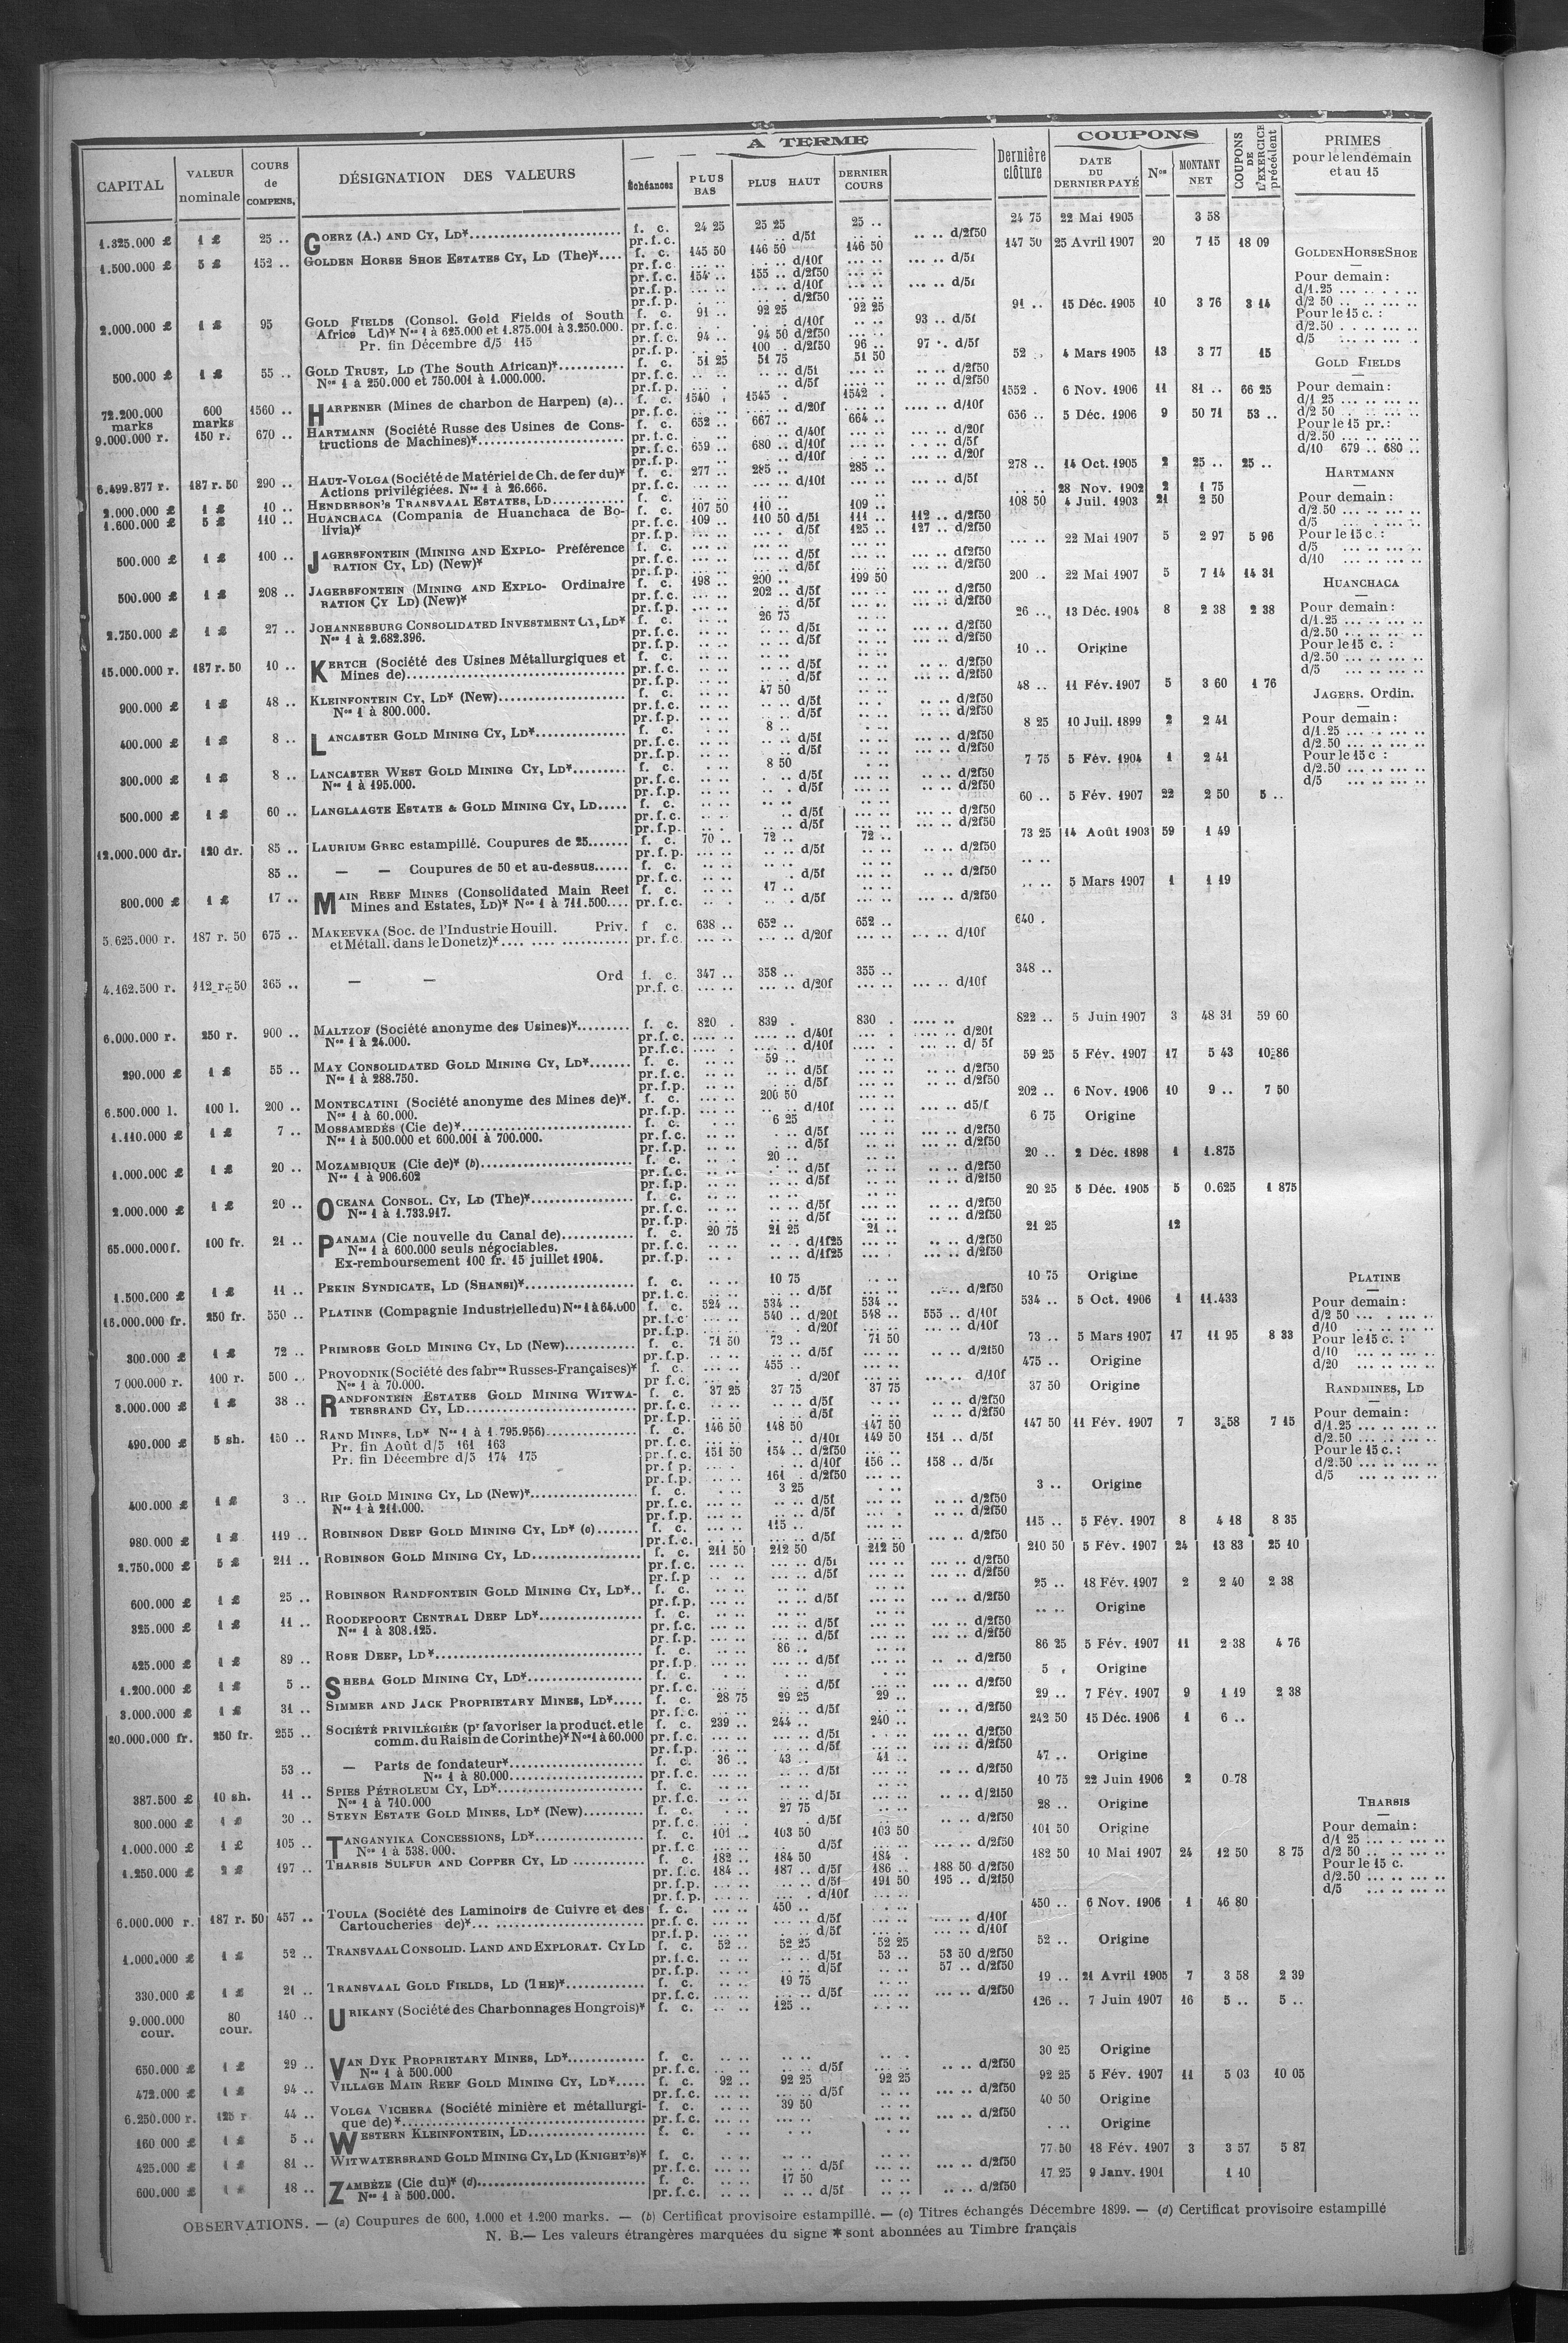 A TERME
COUPONS
CAPITAL
VALEUR nominale
COURS de COMPENS.
DÉSIGNATION DES VALEURS
Échéances
PLUS BAS
PLUS HAUT
DERNIER COURS
Dernière clôture
DATE DU DERNIER PAYÉ
Nos
MONTANT NET
COUPONS DE L'EXERCICE précédent
PRIMES pour le lendemain et au 15
1.325.000 £ 1 £ 25 .. GOERZ (A.) AND CY, LD* f. c. 24 25 25 25 25 .. 24 75 22 Mai 1905 3 58
pr.f.c. .. .. d/5f .. .. d/2f50
1.500.000 £ 5 £ 152 .. GOLDEN HORSE SHOE ESTATES CY, LD (The)* f. c. 145 50 146 50 146 50 147 50 25 Avril 1907 20 7 15 18 09
2.000.000 £ 1 £ 95 GOLD FIELDS (Consol. Gold Fields of South f. c. 91 .. 92 25 92 25 91 .. 15 Déc. 1905 10 3 76 3 14
Africa Ld)* Nos 1 à 625.000 et 1.875.001 à 3.250.000. pr.f.c. d/10f 93 .. d/5f
Pr. fin Décembre d/5 115 pr.f.c. 94 .. 94 50 d/2f50
pr.f.p. 100 . d/2f50 96 .. 97 .. d/5f
500.000 £ 1 £ 55 .. GOLD TRUST, LD (The South African)* f. c. 51 25 51 75 51 50 52 .. 4 Mars 1905 13 3 77 15
Nos 1 à 250.000 et 750.001 à 1.000.000.
72.200.000 marks 600 marks 1560 .. HARPENER (Mines de charbon de Harpen) (a).. f. c. 1540 . 1545 . 1542 . 1552 . 6 Nov. 1906 11 81 .. 66 25
9.000.000 r. 150 r. 670 .. HARTMANN (Société Russe des Usines de Cons- f. c. 652 .. 667 .. 664 .. 656 .. 5 Déc. 1906 9 50 71 53 ..
tructions de Machines)* pr.f.c. 659 .. 680 .. d/10f
6.499.877 r. 187 r. 50 290 .. HAUT-VOLGA (Société de Matériel de Ch. de fer du)* f. c. 277 .. 285 .. 285 .. 278 .. 14 Oct. 1905 2 25 .. 25 ..
Actions privilégiées. Nos 1 à 26.666. pr.f.c. d/10f d/5f
2.000.000 £ 1 £ 10 .. HENDERSON'S TRANSVAAL ESTATES, LD f. c. 28 Nov. 1902 2 1 75
1.600.000 £ 5 £ 110 .. HUANCHACA (Compania de Huanchaca de Bo- f. c. 107 50 110 .. 109 .. 108 50 4 Juil. 1903 21 2 50
livia)* pr.f.c. 109 .. 110 50 d/5f 111 .. 112 .. d/2f50
pr.f.p. d/5f 125 .. 127 .. d/2f50
500.000 £ 1 £ 100 .. JAGERSFONTEIN (MINING AND EXPLO- Préférence f. c. 22 Mai 1907 5 2 97 5 96
RATION CY, LD) (New)*
500.000 £ 1 £ 208 .. JAGERSFONTEIN (MINING AND EXPLO- Ordinaire f. c. 198 .. 200 .. 199 50 200 .. 22 Mai 1907 5 7 14 14 31
RATION CY LD) (New)* pr.f.c. 202 .. d/5f d/2f50
2.750.000 £ 1 £ 27 .. JOHANNESBURG CONSOLIDATED INVESTMENT CY, LD* f. c. 26 75 26 .. 13 Déc. 1904 8 2 38 2 38
Nos 1 à 2.682.396.
15.000.000 r. 187 r. 50 10 .. KERTCH (Société des Usines Métallurgiques et f. c. 10 .. Origine
Mines de)
900.000 £ 1 £ 48 .. KLEINFONTEIN CY, LD* (New) f. c. 47 50 48 .. 11 Fév. 1907 5 3 60 1 76
Nos 1 à 800.000.
400.000 £ 1 £ 8 .. LANCASTER GOLD MINING CY, LD* f. c. 8 .. 8 25 10 Juil. 1899 2 2 41
300.000 £ 1 £ 8 .. LANCASTER WEST GOLD MINING CY, LD* f. c. 8 50 7 75 5 Fév. 1904 1 2 41
Nos 1 à 195.000.
500.000 £ 1 £ 60 .. LANGLAAGTE ESTATE & GOLD MINING CY, LD f. c. 60 .. 5 Fév. 1907 22 2 50 5 ..
12.000.000 dr. 120 dr. 85 .. LAURIUM GREC estampillé. Coupures de 25 f. c. 70 .. 72 .. 72 .. 73 25 14 Août 1903 59 1 49
85 .. — — Coupures de 50 et au-dessus f. c.
800.000 £ 1 £ 17 .. MAIN REEF MINES (Consolidated Main Reef f. c. 17 .. 5 Mars 1907 1 1 19
Mines and Estates, LD)* Nos 1 à 711.500 pr.f.c. d/5f d/2f50
5.625.000 r. 187 r. 50 675 .. MAKEEVKA (Soc. de l'Industrie Houill. Priv. f c. 638 .. 652 .. 652 .. 640 .
et Métall. dans le Donetz)* pr.f.c. d/20f d/10f
4.162.500 r. 112 r. 50 365 .. — — Ord f. c. 347 .. 358 .. 355 .. 348 ..
pr.f.c. d/20f d/10f
6.000.000 r. 250 r. 900 .. MALTZOF (Société anonyme des Usines)* f. c. 820 . 839 . 830 . 822 .. 5 Juin 1907 3 48 31 59 60
Nos 1 à 24.000. pr.f.c. d/40f d/20f
290.000 £ 1 £ 55 .. MAY CONSOLIDATED GOLD MINING CY, LD* f. c. 59 .. 59 25 5 Fév. 1907 17 5 43 10-86
Nos 1 à 288.750.
6.500.000 l. 100 l. 200 .. MONTECATINI (Société anonyme des Mines de)*. f. c. 200 50 202 .. 6 Nov. 1906 10 9 .. 7 50
Nos 1 à 60.000. pr.f.p. d/10f d5/f
1.110.000 £ 1 £ 7 .. MOSSAMEDÈS (Cie de)* f. c. 6 25 6 75 Origine
Nos 1 à 500.000 et 600.001 à 700.000.
1.000.000 £ 1 £ 20 .. MOZAMBIQUE (Cie de)* (b) f. c. 20 .. 20 .. 2 Déc. 1898 1 1.875
Nos 1 à 906.602
2.000.000 £ 1 £ 20 .. OCEANA CONSOL. CY, LD (The)* f. c. 20 25 5 Déc. 1905 5 0.625 1 875
Nos 1 à 1.733.917.
65.000.000 f. 100 fr. 21 .. PANAMA (Cie nouvelle du Canal de) f. c. 20 75 21 25 21 .. 21 25 12
Nos 1 à 600.000 seuls négociables. pr.f.c. d/1f25 d/2f50
Ex-remboursement 100 fr. 15 juillet 1904. pr.f.p. d/1f25 d/2f50
1.500.000 £ 1 £ 11 .. PEKIN SYNDICATE, LD (SHANSI)* f. c. 10 75 10 75 Origine
16.000.000 fr. 250 fr. 550 .. PLATINE (Compagnie Industrielle du) Nos 1 à 64.000 f. c. 524 .. 534 .. 534 .. 534 .. 5 Oct. 1906 1 11.433
pr.f.c. 540 .. d/20f 548 .. 555 .. d/10f
300.000 £ 1 £ 72 .. PRIMROSE GOLD MINING CY, LD (New) f. c. 71 50 73 .. 71 50 73 .. 5 Mars 1907 17 11 95 8 33
7 000.000 r. 100 r. 500 .. PROVODNIK (Société des fabres Russes-Françaises)* f. c. 455 .. 475 .. Origine
Nos 1 à 70.000. pr f.c. d/20f d/10f
3.000.000 £ 1 £ 38 .. RANDFONTEIN ESTATES GOLD MINING WITWA- f. c. 37 25 37 75 37 75 37 50 Origine
TERSRAND CY, LD
490.000 £ 5 sh. 150 .. RAND MINES, LD* Nos 1 à 1.795.956) f. c. 146 50 148 50 147 50 147 50 11 Fév. 1907 7 3-58 7 15
Pr. fin Août d/5 161 163 pr.f.c. d/10f 149 50 151 .. d/5f
Pr. fin Décembre d/5 174 175 pr.f.c. 151 50 154 .. d/2f50
pr.f.p. d/10f 156 .. 158 .. d/5f
pr.f.p. 161 . d/2f50
400.000 £ 1 £ 3 .. RIP GOLD MINING CY, LD (New)* f. c. 3 25 3 .. Origine
Nos 1 à 211.000.
980.000 £ 1 £ 119 .. ROBINSON DEEP GOLD MINING CY, LD* (c) f. c. 115 .. 115 .. 5 Fév. 1907 8 4 18 8 35
2.750.000 £ 5 £ 211 .. ROBINSON GOLD MINING CY, LD f. c. 211 50 212 50 212 50 210 50 5 Fév. 1907 24 13 83 25 10
600.000 £ 1 £ 25 .. ROBINSON RANDFONTEIN GOLD MINING CY, LD* f. c. 25 .. 18 Fév. 1907 2 2 40 2 38
325.000 £ 1 £ 11 .. ROODEPOORT CENTRAL DEEP LD* f. c. Origine
Nos 1 à 308.125.
425.000 £ 1 £ 89 .. ROSE DEEP, LD* f. c. 86 .. 86 25 5 Fév. 1907 11 2 38 4 76
1.200.000 £ 1 £ 5 .. SHEBA GOLD MINING CY, LD* f. c. 5 . Origine
3.000.000 £ 1 £ 31 .. SIMMER AND JACK PROPRIETARY MINES, LD* f. c. 28 75 29 25 29 .. 29 .. 7 Fév. 1907 9 1 19 2 38
20.000.000 fr. 250 fr. 255 .. SOCIÉTÉ PRIVILÉGIÉE (pr favoriser la product. et le f. c. 239 .. 244 .. 240 .. 242 50 15 Déc. 1906 1 6 ..
comm. du Raisin de Corinthe)* Nos 1 à 60.000 pr.f.c. d/5f d/2f50
53 .. — Parts de fondateur* f. c. 36 .. 43 .. 41 .. 47 .. Origine
Nos 1 à 80.000
387.500 £ 10 sh. 11 .. SPIES PÉTROLEUM CY, LD* f. c. 10 75 22 Juin 1906 2 0-78
Nos 1 à 710.000
800.000 £ 1 £ 30 .. STEYN ESTATE GOLD MINES, LD* (New) f. c. 27 75 28 .. Origine
1.000.000 £ 1 £ 105 .. TANGANYIKA CONCESSIONS, LD* f. c. 101 .. 103 50 103 50 101 50 Origine
Nos 1 à 538.000.
1.250.000 £ 2 £ 197 .. THARSIS SULFUR AND COPPER CY, LD f. c. 182 .. 184 50 184 . 182 50 10 Mai 1907 24 12 50 8 75
pr.f.c. 184 .. 187 .. d/5f 186 .. 188 50 d/2f50
pr.f.p. d/5f 191 50 195 .. d/2f50
pr.f.p. d/10f
6.000.000 r. 187 r. 50 457 .. TOULA (Société des Laminoirs de Cuivre et des f. c. 450 .. 450 .. 6 Nov. 1906 1 46 80
Cartoucheries de)* pr.f.c. d/5f d/10f
1.000.000 £ 1 £ 52 .. TRANSVAAL CONSOLID. LAND AND EXPLORAT. CY LD f. c. 52 .. 52 25 52 25 52 .. Origine
pr.f.c. d/5f 53 .. 53 50 d/2f50
pr.f.p. d/5f 57 .. d/2f50
330.000 £ 1 £ 21 .. TRANSVAAL GOLD FIELDS, LD (THE)* f. c. 19 75 19 .. 21 Avril 1905 7 3 58 2 39
9.000.000 cour. 80 cour. 140 .. URIKANY (Société des Charbonnages Hongrois)* f. c. 125 .. 126 .. 7 Juin 1907 16 5 .. 5 ..
650.000 £ 1 £ 29 .. VAN DYK PROPRIETARY MINES, LD* f. c. 30 25 Origine
Nos 1 à 500.000
472.000 £ 1 £ 94 .. VILLAGE MAIN REEF GOLD MINING CY, LD* f. c. 92 .. 92 25 92 25 92 25 5 Fév. 1907 11 5 03 10 05
6.250.000 r. 125 r 44 .. VOLGA VICHERA (Société minière et métallurgi- f. c. 39 50 40 50 Origine
que de)*
160 000 £ 1 £ 5 .. WESTERN KLEINFONTEIN, LD f. c. Origine
425.000 £ 1 £ 81 .. WITWATERSRAND GOLD MINING CY, LD (KNIGHT'S)* f. c. 77 50 18 Fév. 1907 3 3 57 5 87
600.000 £ 1 £ 18 .. ZAMBÈZE (Cie du)* (d) f. c. 17 50 17 25 9 Janv. 1901 1 10
Nos 1 à 500.000. pr.f.c. d/5f d/2f50
GOLDEN HORSE SHOE
Pour demain:
d/1.25
d/2 50
Pour le 15 c. :
d/2.50
d/5
GOLD FIELDS
Pour demain:
d/1 25
d/2 50
Pour le 15 pr.:
d/2.50
d/10 679 .. 680 ..
HARTMANN
Pour demain:
d/2.50
d/5
Pour le 15 c. :
d/5
d/10
HUANCHACA
Pour demain:
d/1.25
d/2.50
Pour le 15 c. :
d/2.50
d/5
JAGERS. Ordin.
Pour demain:
d/1.25
d/2.50
Pour le 15 c :
d/2.50
d/5
PLATINE
Pour demain:
d/2 50
d/10
Pour le 15 c. :
d/10
d/20
RANDMINES, LD
Pour demain:
d/1.25
d/2.50
Pour le 15 c. :
d/2.50
d/5
THARSIS
Pour demain:
d/1 25
d/2 50
Pour le 15 c.
d/2.50
d/5
OBSERVATIONS. — (a) Coupures de 600, 1.000 et 1.200 marks. — (b) Certificat provisoire estampillé. — (c) Titres échangés Décembre 1899. — (d) Certificat provisoire estampillé
N. B.— Les valeurs étrangères marquées du signe * sont abonnées au Timbre français